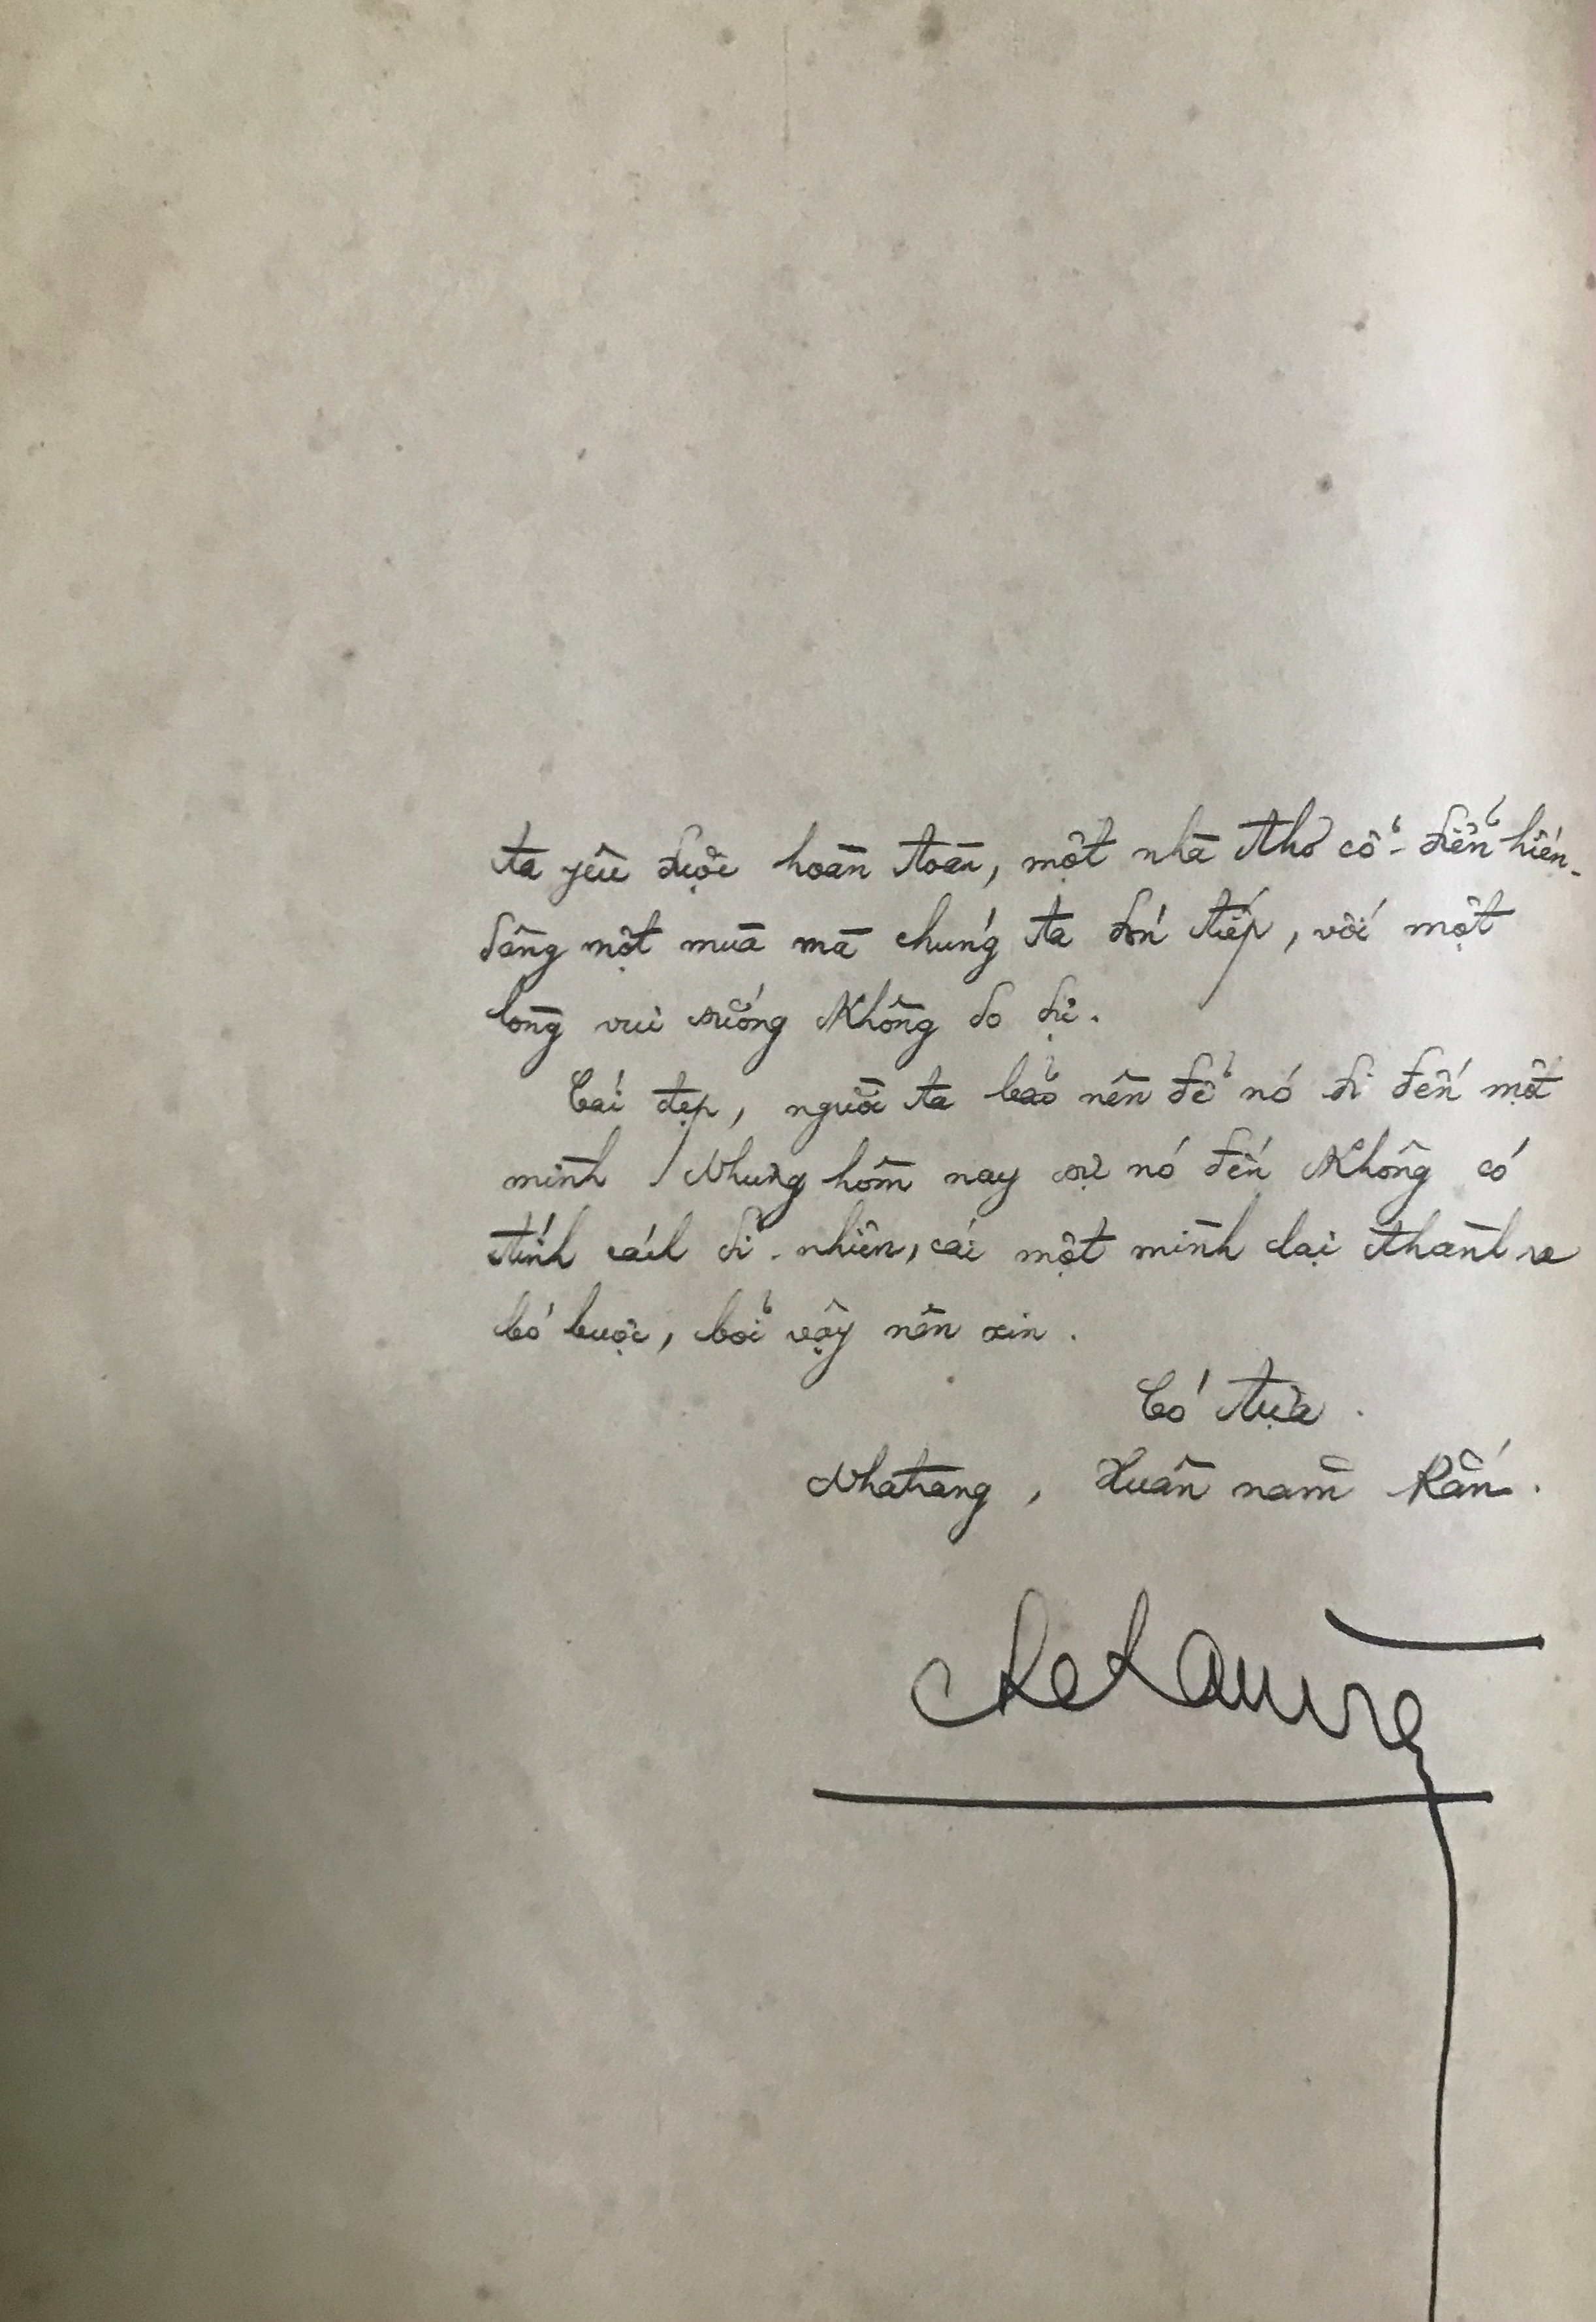 ta yêu được hoàn toàn, một nhà thơ cổ-điển hiến-
dâng một mùa mà chúng ta đón tiếp, với một
lòng vui sướng không do dự.
Cái đẹp, người ta bảo nên để nó đi đến một
mình / Nhưng hôm nay sự nó đến không có
tính cách dĩ-nhiên, cái một mình lại thành ra
bó buộc, bởi vậy nên xin.
Có tựa.
Nhatrang, Xuân năm Rắn.